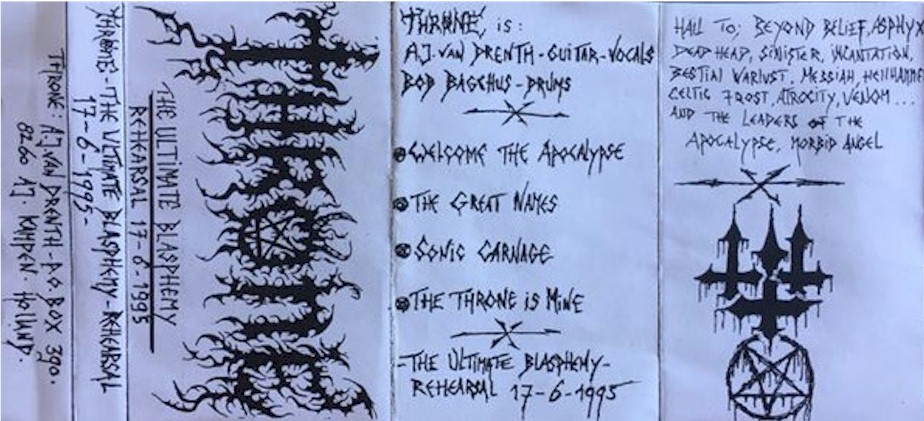 THRONE: A.J. VAN DRENTH - P.O. BOX 390.
8260 AJ. KAMPEN. HOLLAND.
THRONE: - THE ULTIMATE BLASPHEMY - REHEARSAL
17-6-1995-
THE ULTIMATE BLASPHEMY
REHEARSAL 17-6-1995
THRONE
THRONE, is:
A.J. VAN DRENTH - GUITAR - VOCALS
BOB BAGCHUS - DRUMS
WELCOME THE APOCALYPSE
THE GREAT NAMES
SONIC CARNAGE
THE THRONE is MINE
-THE ULTIMATE BLASPHEMY-
REHEARSAL 17-6-1995
HAIL TO; BEYOND BELIEF, ASPHYX
DEAD HEAD, SINISTER, INCANTATION,
BESTIAL WARLUST, MESSIAH, HELLHAMMER
CELTIC FROST, ATROCITY, VENOM...
AND THE LEADERS OF THE
APOCALYPSE, MORBID ANGEL